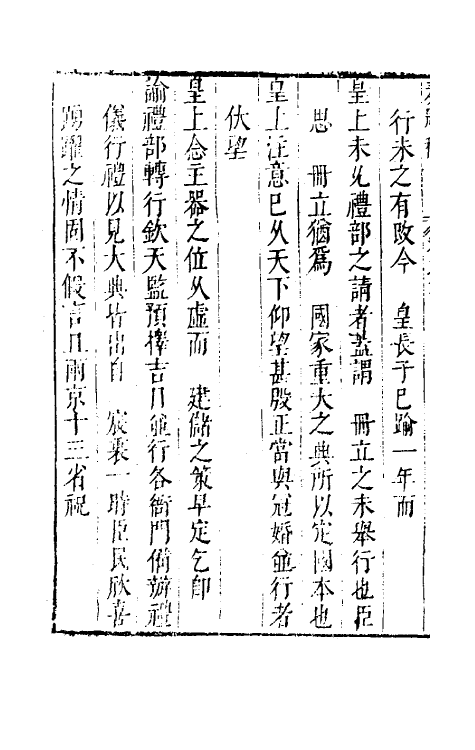 行未之有改今　皇長子已踰一年而
皇上未允禮部之請者蓋謂　冊立之未舉行也臣
思　冊立猶為　國家重大之典所以定國本也
皇上注意已久天下仰望甚殷正當與冠婚並行者
伏望
皇上念主器之位久虛而　建儲之策早定乞即
諭禮部轉行欽天監預擇吉日並行各衙門備辦禮
儀行禮以見大典皆出自　宸衷一時臣民欣喜
踴躍之情固不假言且兩京十三省祝